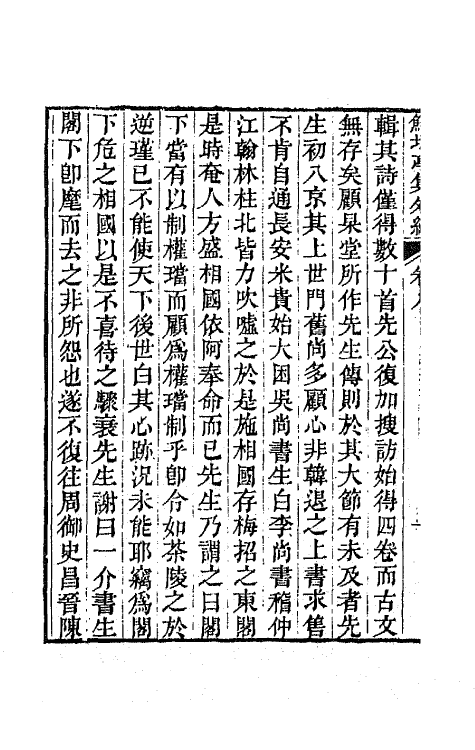 鮚埼亭集外編 卷八
輯其詩僅得數十首先公復加搜訪始得四卷而古文
無存矣顧杲堂所作先生傳則於其大節有未及者先
生初入京其上世門舊尚多顧心非韓退之上書求售
不肯自通長安米貴始大困吳尚書生白李尚書稽仲
江翰林柱北皆力吹噓之於是施相國存梅招之東閣
是時奄人方盛相國依阿奉命而已先生乃謂之曰閣
下當有以制權璫而顧爲權璫制乎卽令如茶陵之於
逆瑾已不能使天下後世白其心跡況未能耶竊爲閣
下危之相國以是不喜待之驟衰先生謝曰一介書生
閣下卽麾而去之非所怨也遂不復往周御史昌晉陳